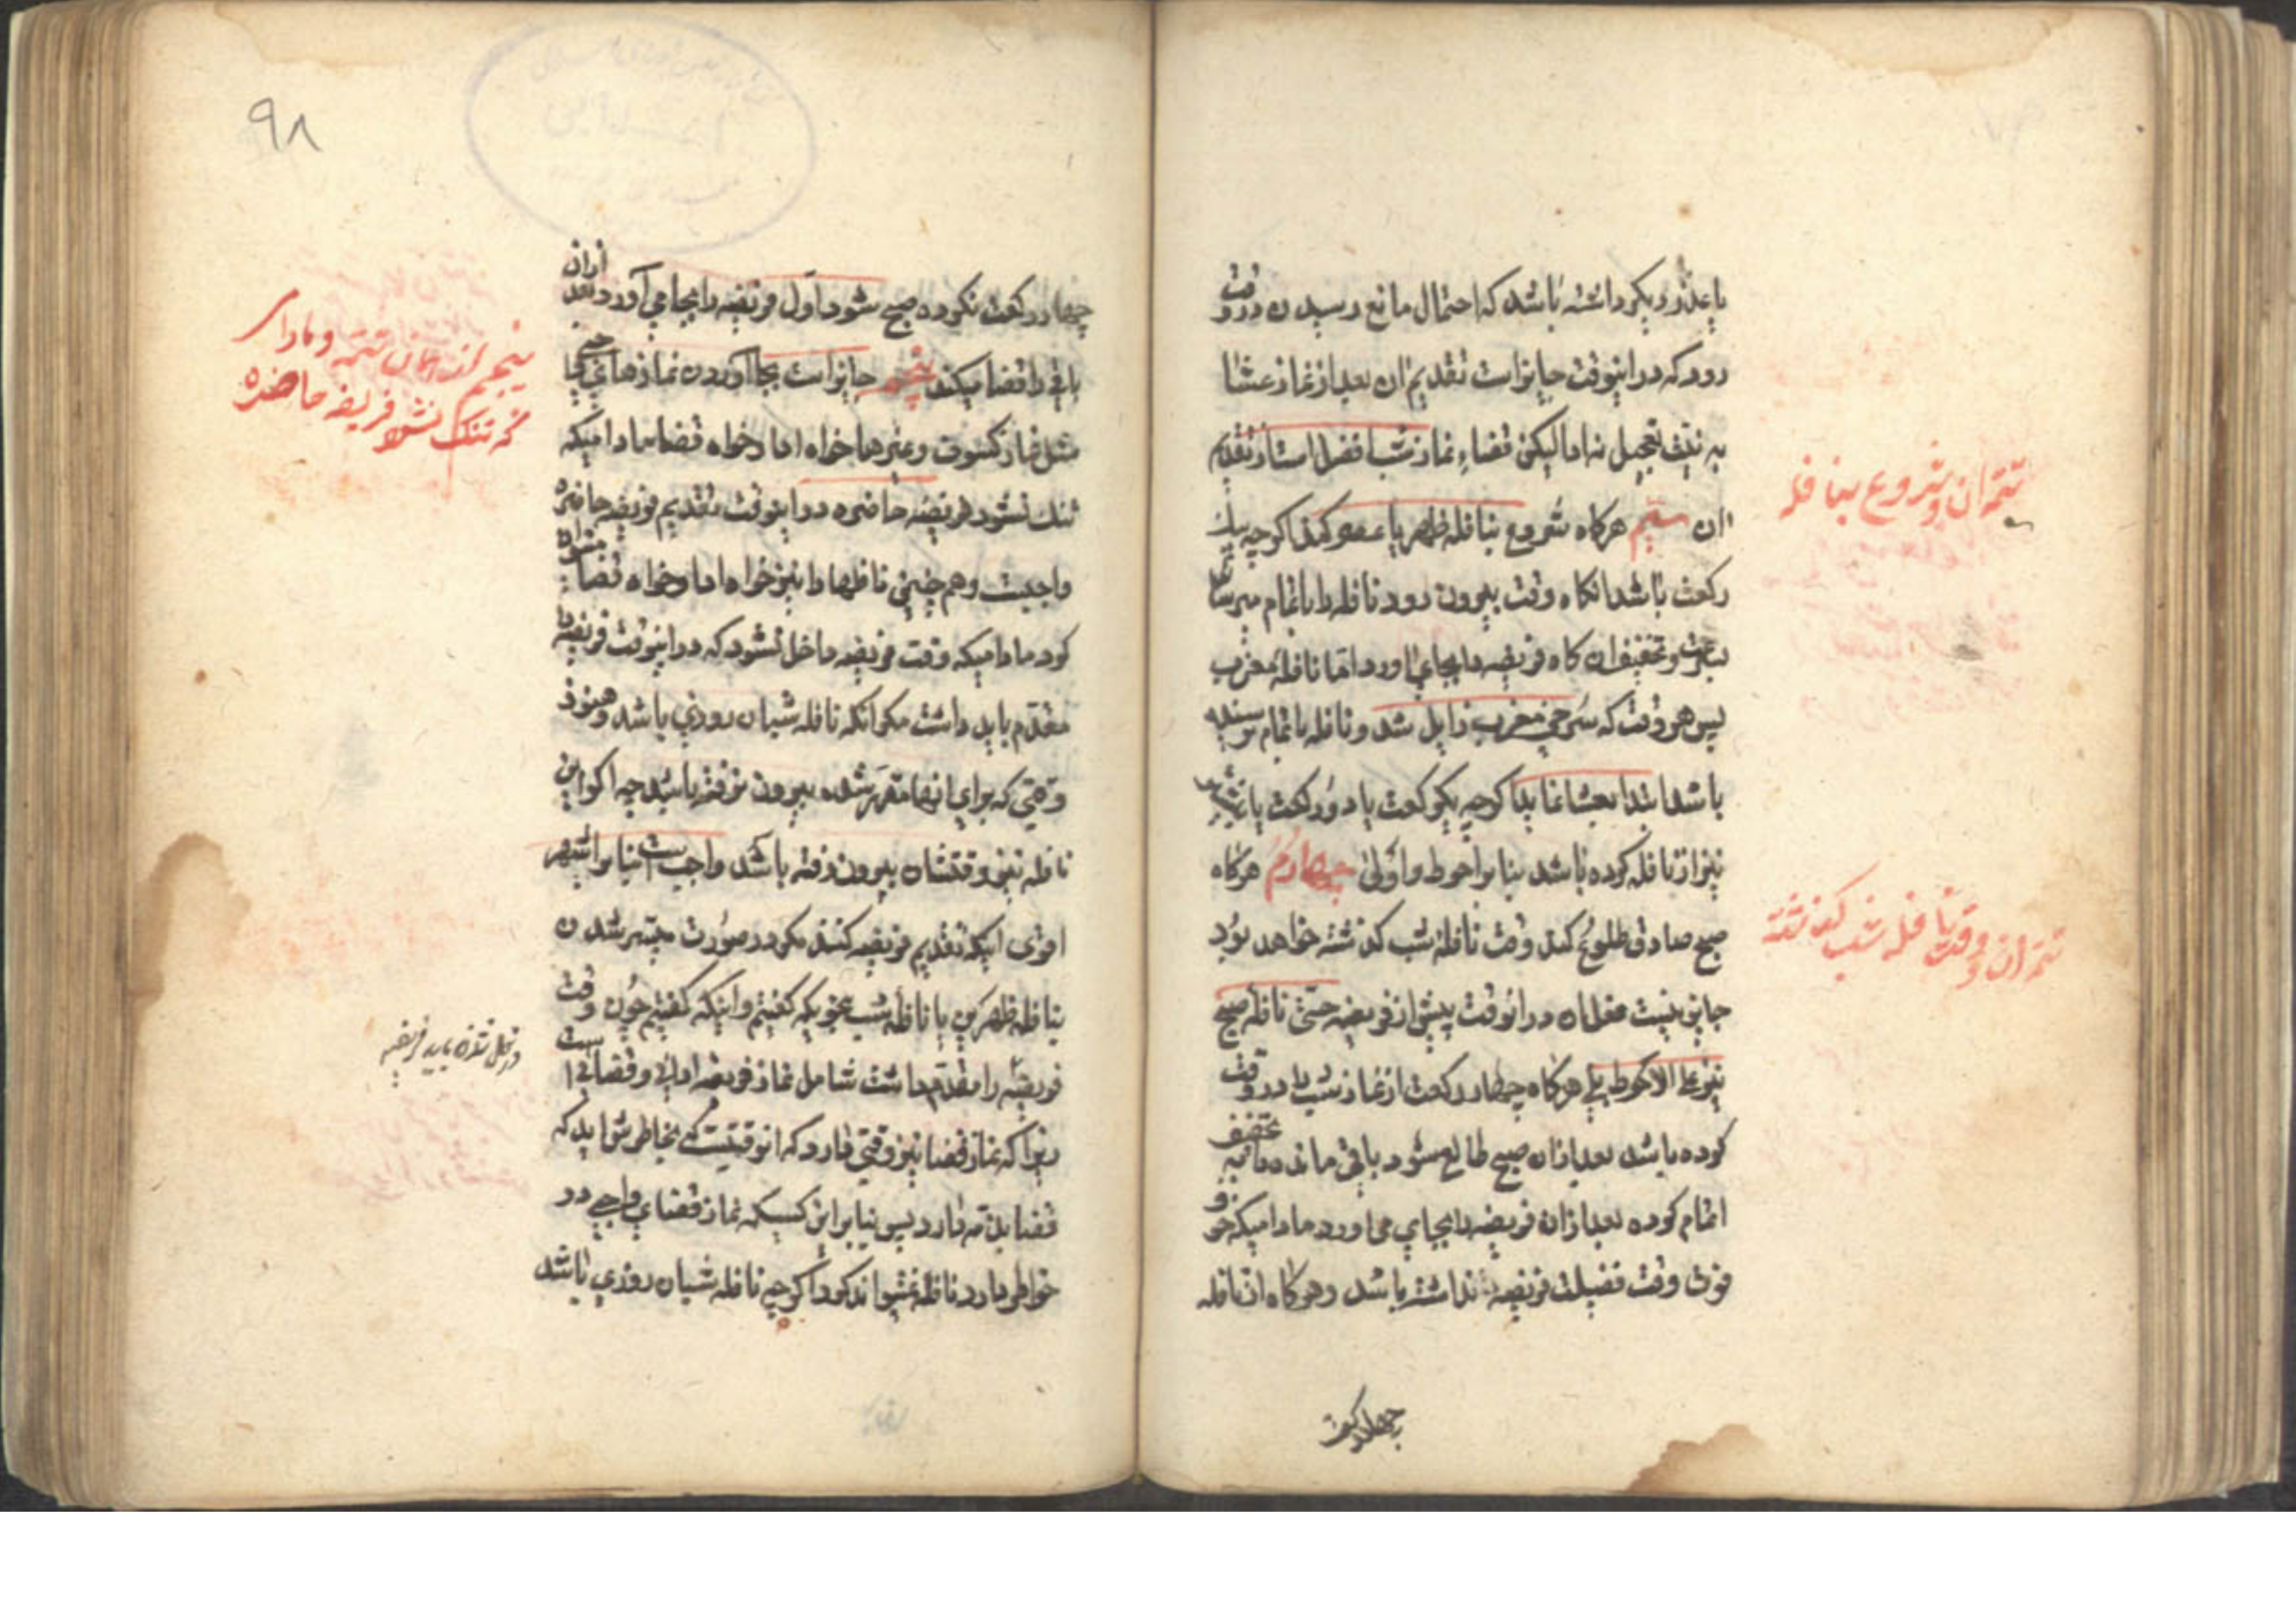 یا عذر دیگر داشته باشد که احتمال مانع رسیدن در وقت
رود که در اینوقت جایز است تقدیم ان بعد از نماز عشا
به نیت تعجیل نه ادا لیکن قضاء نماز شب افضل است از تقدیم
ان سیم هرکاه شروع بنافله ظهر یا عصر کند اکرچه یک
رکعت باشد انکاه وقت بیرون رود نافله را باتمام میرساند
بسرعت و تخفیف ان کاه فریضه را بجای اورد اما نافله مغرب
پس هر وقت که سرخی مغرب زایل شد و نافله باتمام نرسیده
باشد ابتدا بعشا نماید اکرچه یکرکعت یا دو رکعت یا بیشتر
نیز از نافله کرده باشد بنا بر احوط و اولی چهارم هرکاه
صبح صادق طلوع کند وقت نافله شب کذشته خواهد بود
جایز نیست فعل ان در انوقت پیش از فریضه حتی نافله صبح
نیز علی الاحوط بلی هرکاه چهار رکعت از نماز شب را در وقت
کرده باشد بعد از ان صبح طالع شود باقی مانده را به تخفیف
اتمام کرده بعد از ان فریضه را بجای می اورد مادامیکه خوف
فوت وقت فضیلت فریضه نداشته باشد و هرکاه از نافله
چهار رکعت
تتمه ان و شروع بنافله
تتمه ان و وقت نافله شب کذشته
۹۸
چهار رکعت نکرده صبح شود اول فریضه را بجا می آورد بعد از ان
باقی را قضا میکند پنجم جایز است بجا آوردن نمازهای
مثل نماز کسوف و غیر ها خواه ادا و خواه قضا مادامیکه
تنک نشود فریضه حاضره در اینوقت تقدیم فریضه حاضره
واجبست و هم چنین نافلها را نیز خواه ادا و خواه قضا میتوان
کرد مادامیکه وقت فریضه داخل نشود که در اینوقت فریضه را
مقدم باید داشت مکر انکه نافله شبان روزی باشد و هنوز
وقتی که برای انها مقرر شده بیرون نرفته باشد چه اکر این
نافله نیز وقتشان بیرون رفته باشد واجب است بنا بر اشهر
اقوی اینکه تقدیم فریضه کنند مکر در صورت
بنافله ظهرین یا نافله شب بنحویکه کفتیم و اینکه کفتیم چون وقت
فریضه را مقدم داشت شامل نماز فریضه ادائی و قضائی است
زیرا که نماز قضا نیز وقتی دارد که انوقتیست که بخاطرش اید که
قضا بذمه دارد پس بنا براین کسیکه نماز قضای واجبی در
خواطر دارد نافله نمیتواند کرد اکرچه نافله شبان روزی باشد
پنجم ان تتمه و مادامی
که تنک نشود فریضه حاضره
داخل شد باید فریضه